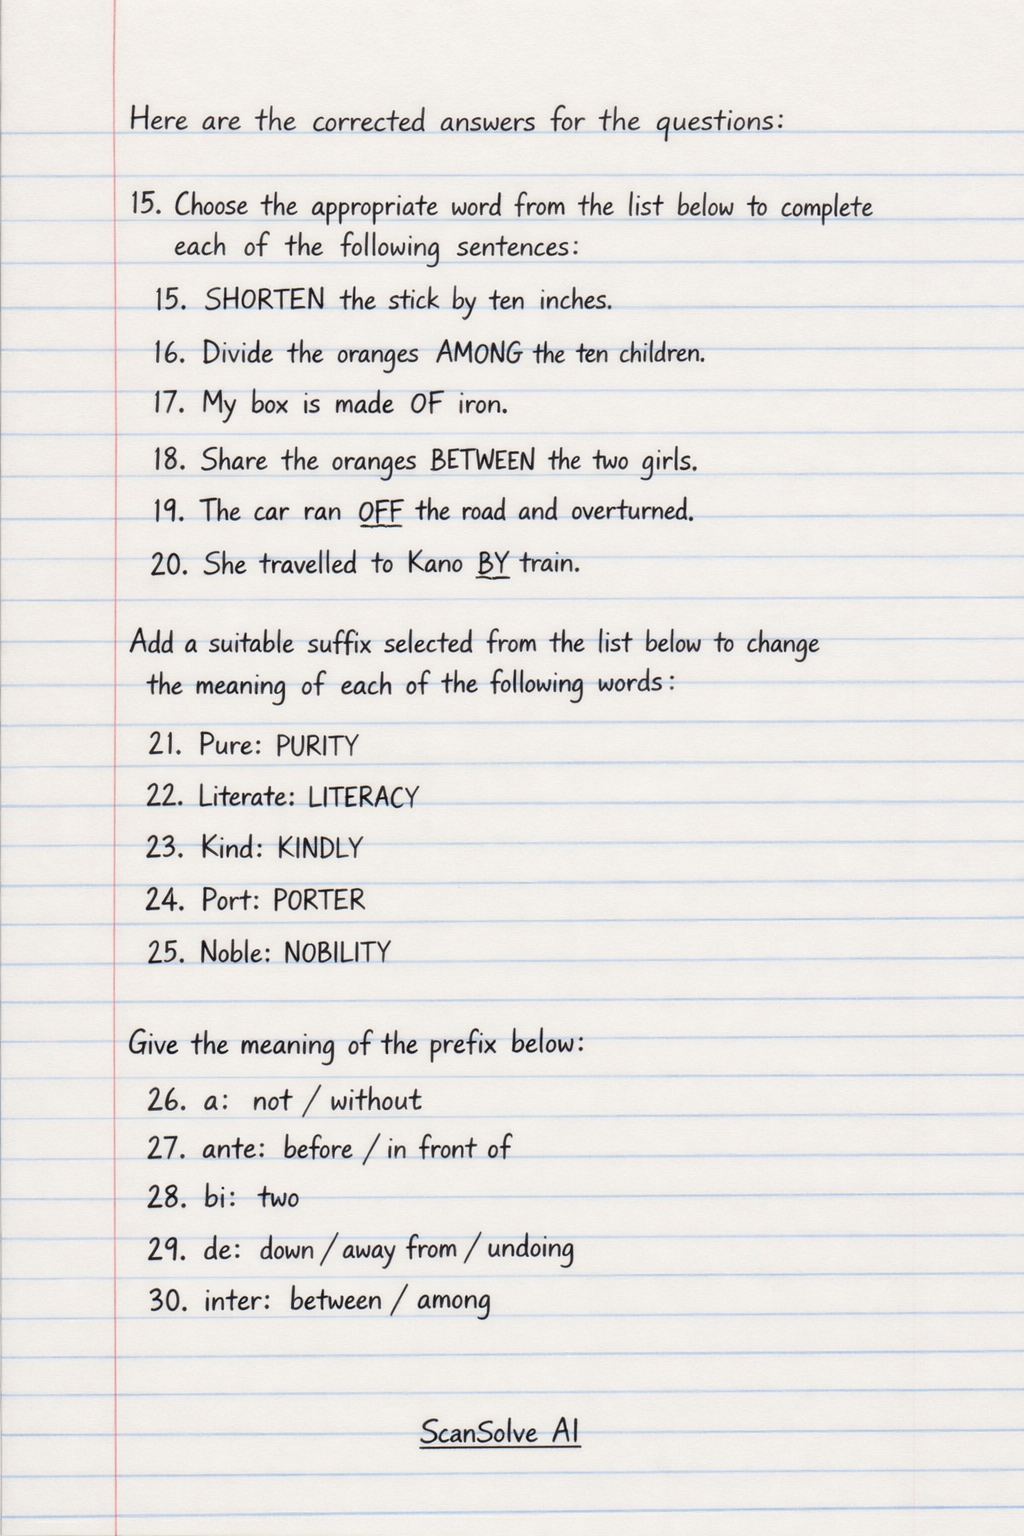 Here are the corrected answers for the questions:
15. Choose the appropriate word from the list below to complete
each of the following sentences:
15. SHORTEN the stick by ten inches.
16. Divide the oranges AMONG the ten children.
17. My box is made OF iron.
18. Share the oranges BETWEEN the two girls.
19. The car ran OFF the road and overturned.
20. She travelled to Kano BY train.
Add a suitable suffix selected from the list below to change
the meaning of each of the following words:
21. Pure: PURITY
22. Literate: LITERACY
23. Kind: KINDLY
24. Port: PORTER
25. Noble: NOBILITY
Give the meaning of the prefix below:
26. a: not / without
27. ante: before / in front of
28. bi: two
29. de: down / away from / undoing
30. inter: between / among
ScanSolve AI